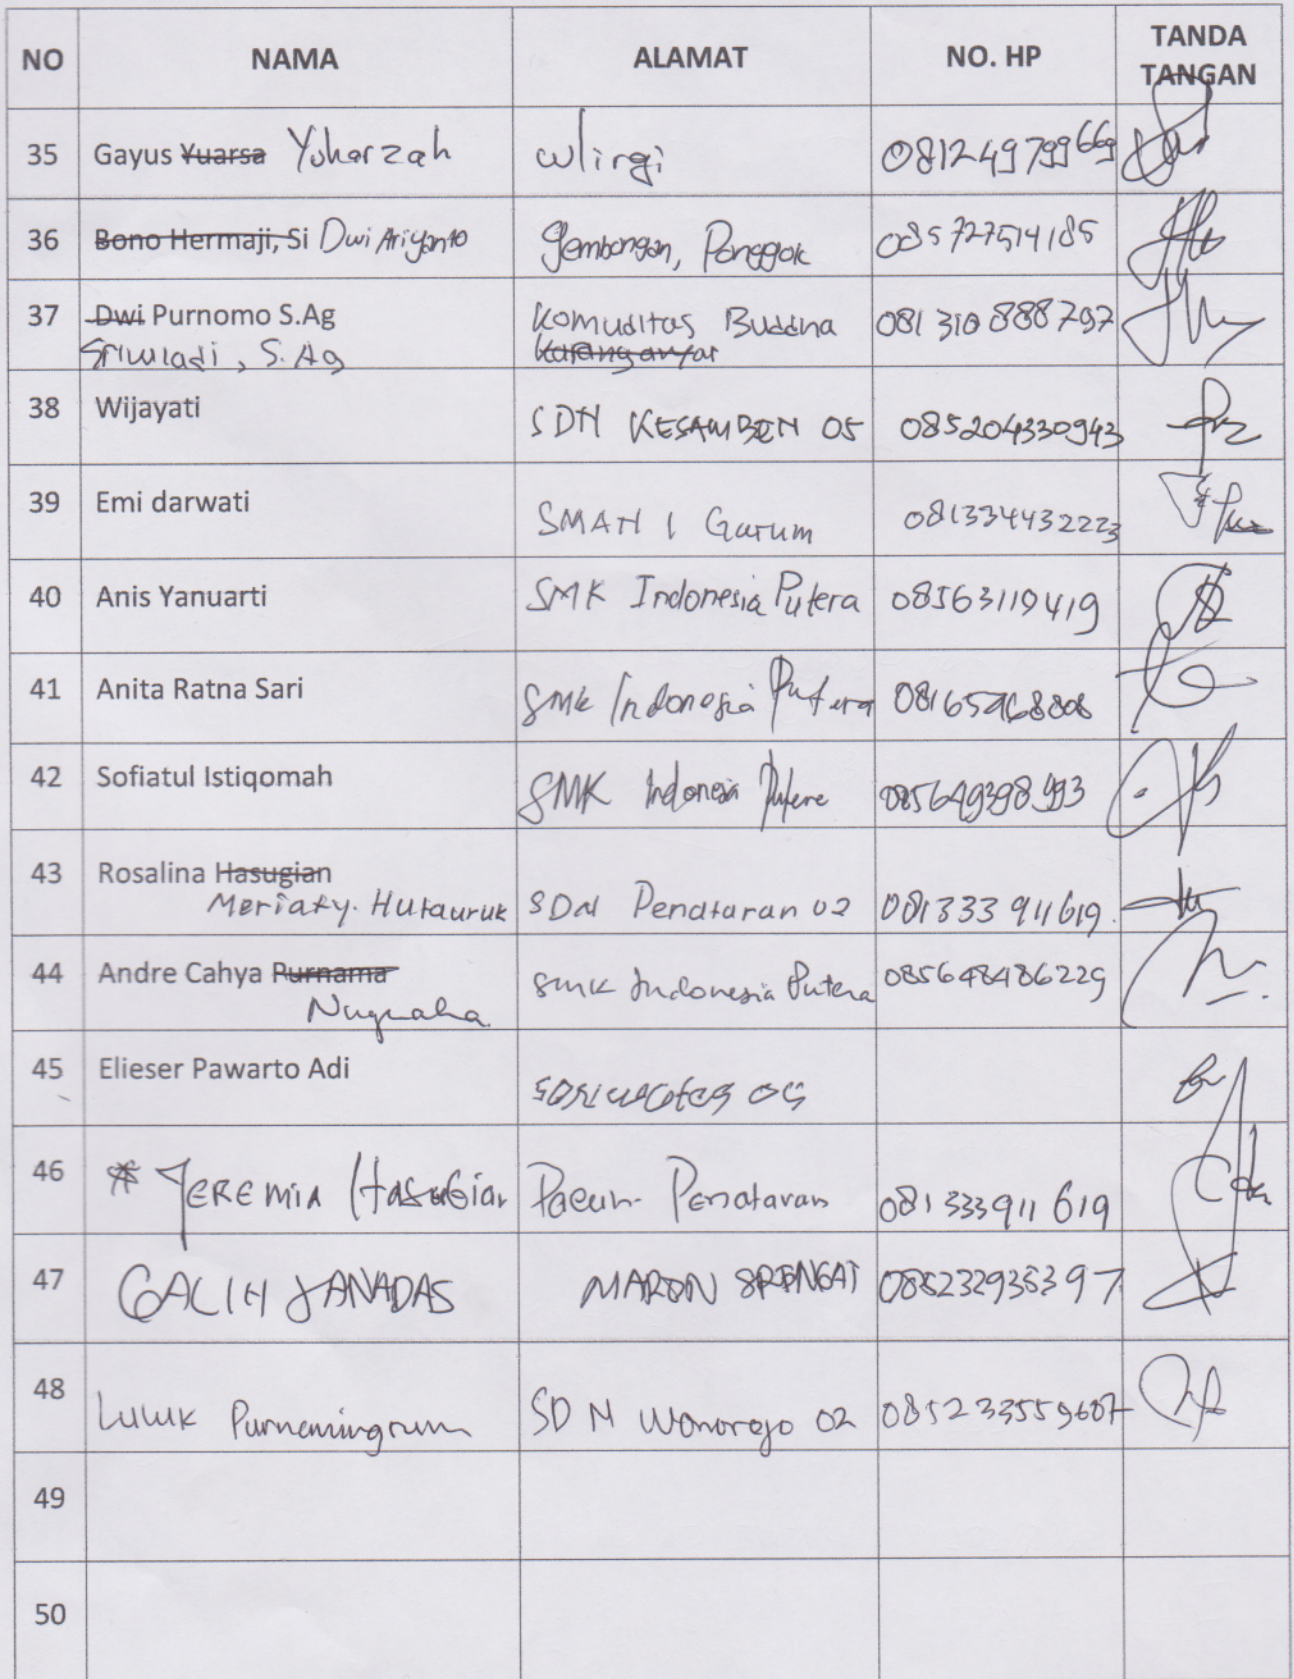 NO NAMA ALAMAT NO. HP TANDA TANGAN
35 Gayus Yuarsa Yoharzah Wlirgi 081249799669
36 Bono Hermaji, Si Dwi Ariyanto Gembongan, Ponggok 085727514185
37 Dwi Purnomo S.Ag Komuditas Buddha 081310888797
Sriwiladi, S.Ag Karanganyar
38 Wijayati SDN KESAMBEN 05 085204330943
39 Emi darwati SMAN 1 Garum 081334432223
40 Anis Yanuarti SMK Indonesia Putera 08563119419
41 Anita Ratna Sari SMK Indonesia Putera
42 Sofiatul Istiqomah SMK Indonesia Putera
43 Rosalina Hasugian
Meriaty. Hutauruk SDN Penataran 02 081333911619.
44 Andre Cahya Purnama SMK Indonesia Putera 085648486229
Nugraha
45 Elieser Pawarto Adi
46 * JEREMIA Hasugian Penataran 081333911619
47 GALIH YANADAS MARON SRENGAT 085232935397
48 Luluk Purnamingrum SDN Wonorejo 02 085233559607
49
50